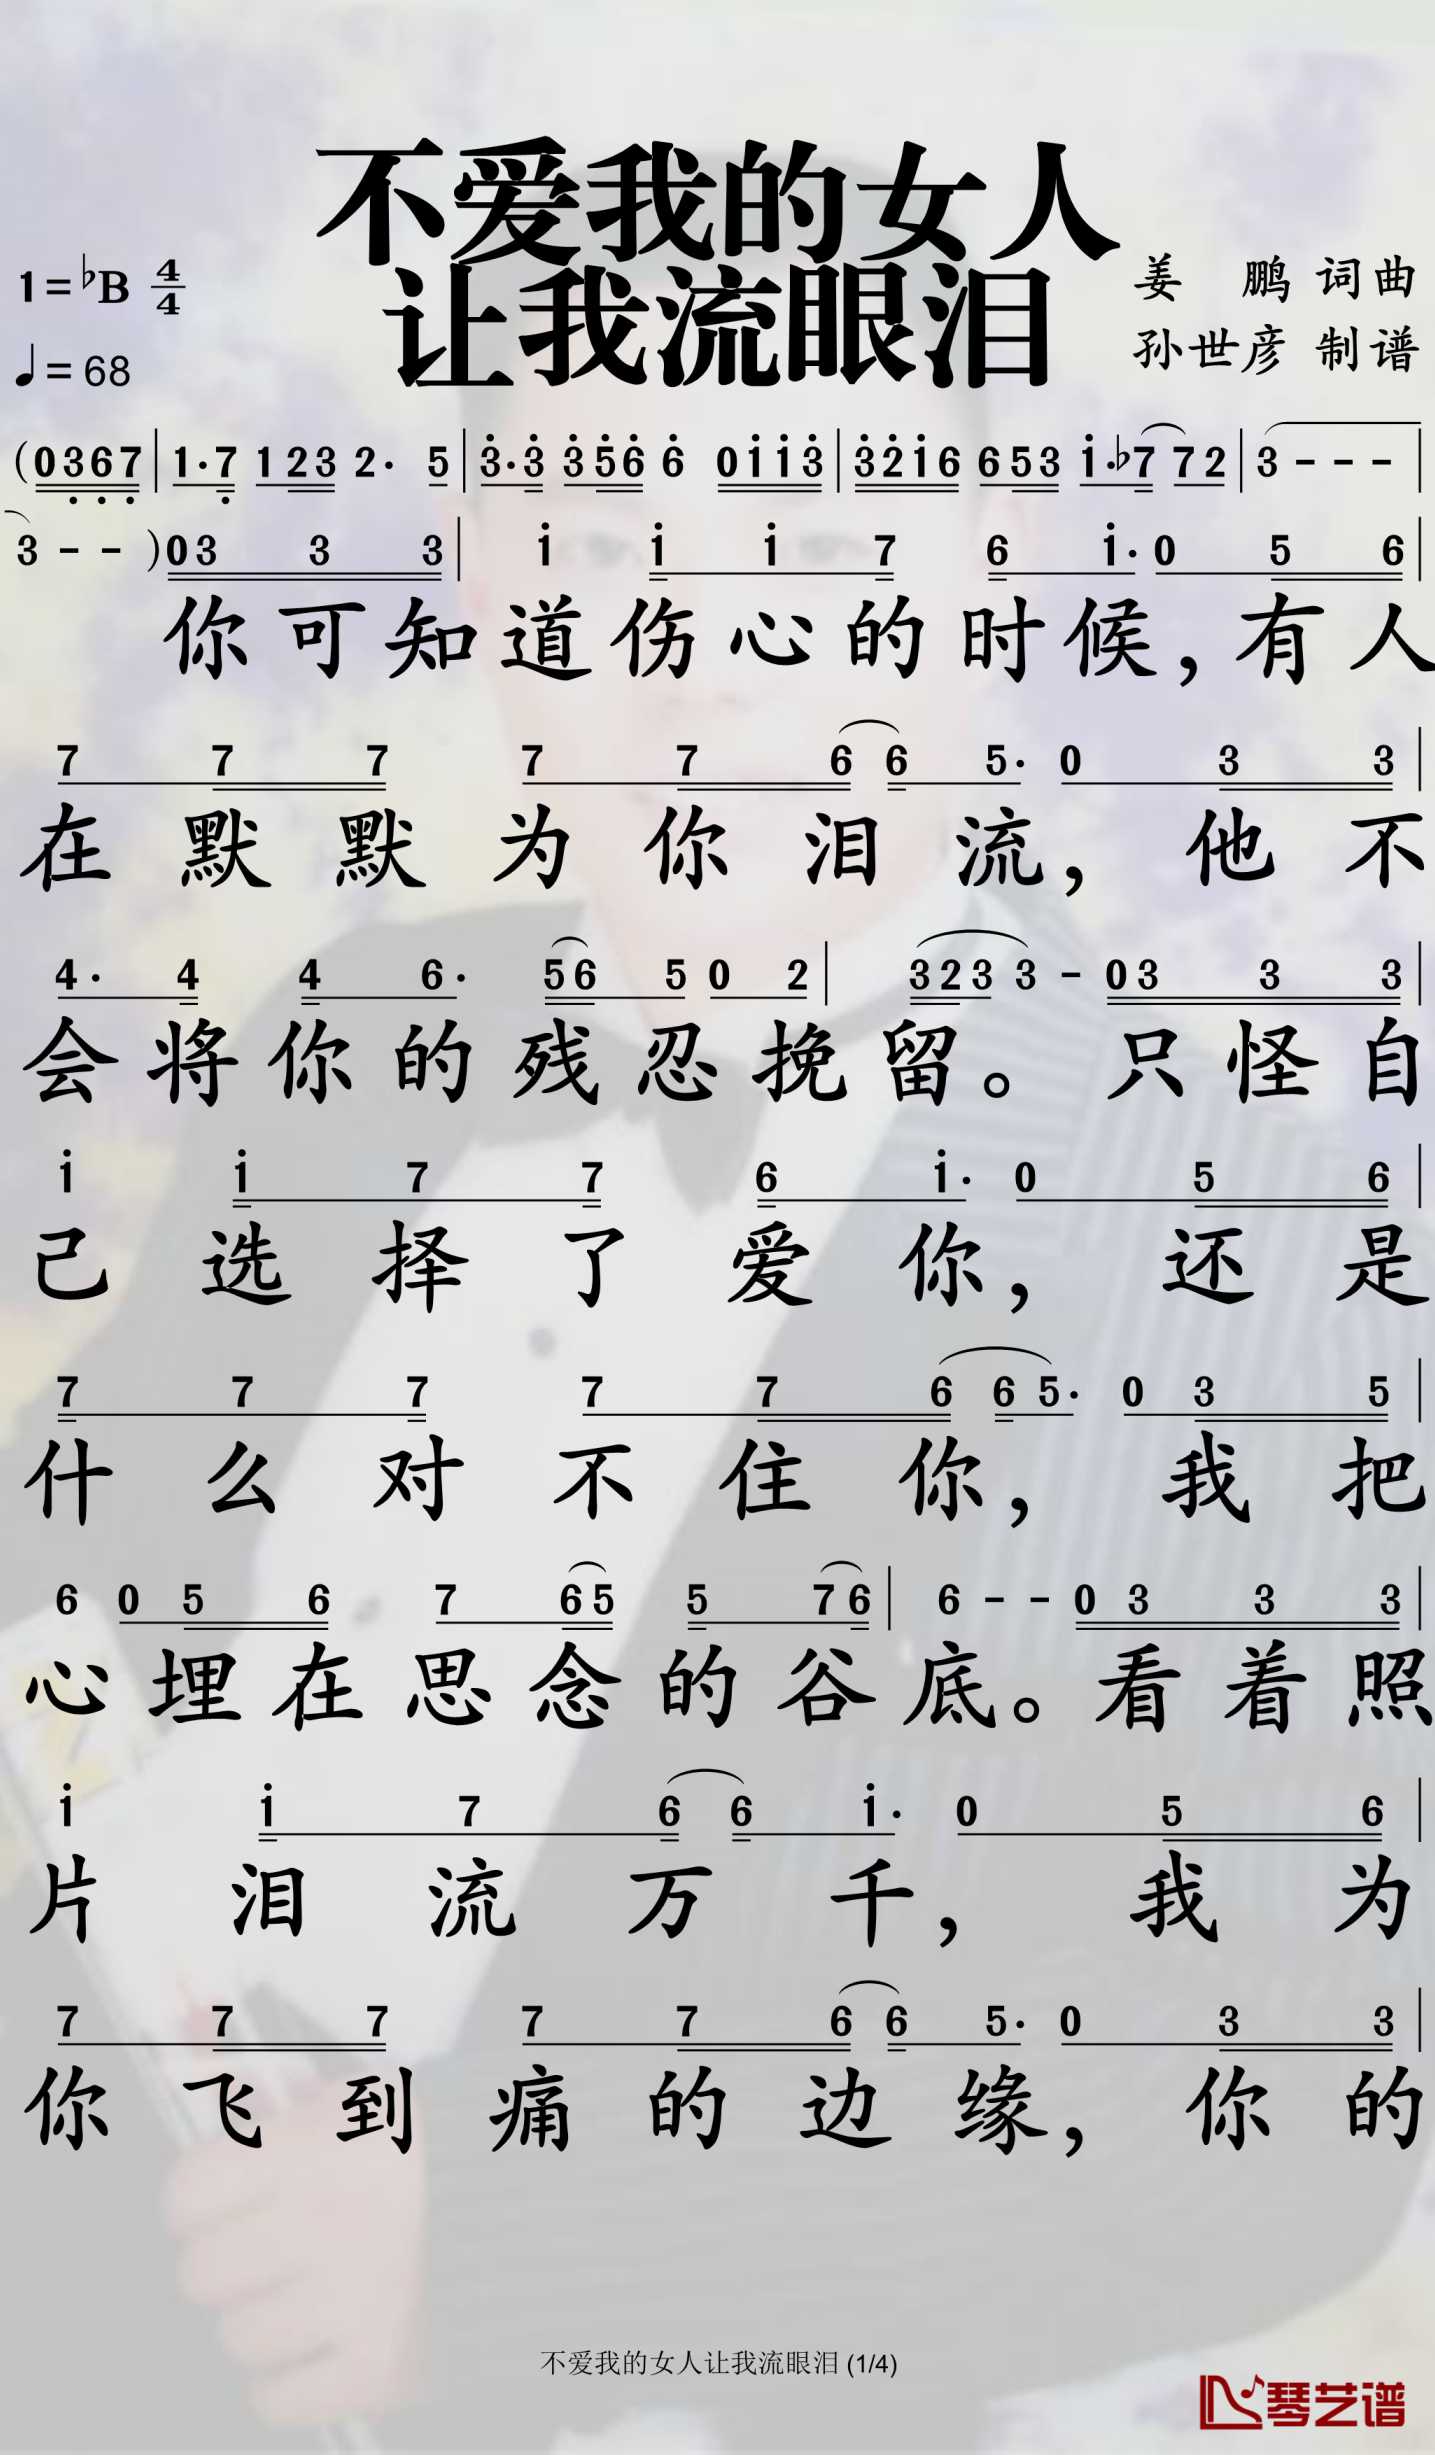 不爱我的女人
让我流眼泪
1=♭B 4/4
♩=68
姜 鹏 词曲
孙世彦 制谱
(0367|1·7 123 2· 5|3·3 356 6 0113|3216 653 1·♭7 72|3 - - -|
3 - - )03 3 3| 1 1 1 7 6 1· 0 5 6|
你可知道伤心的时候,有人
7 7 7 7 7 6 6 5· 0 3 3|
在默默为你泪流,他不
4· 4 4 6· 56 5 0 2| 323 3 - 03 3 3|
会将你的残忍挽留。只怪自
1 1 7 7 6 1· 0 5 6|
己选择了爱你,还是
7 7 7 7 7 6 6 5· 0 3 5|
什么对不住你,我把
6 0 5 6 7 65 5 76| 6 - - 0 3 3 3|
心埋在思念的谷底。看着照
1 1 7 6 6 1· 0 5 6|
片泪流万千,我为
7 7 7 7 7 6 6 5· 0 3 3|
你飞到痛的边缘,你的
不爱我的女人让我流眼泪 (1/4)
琴艺谱